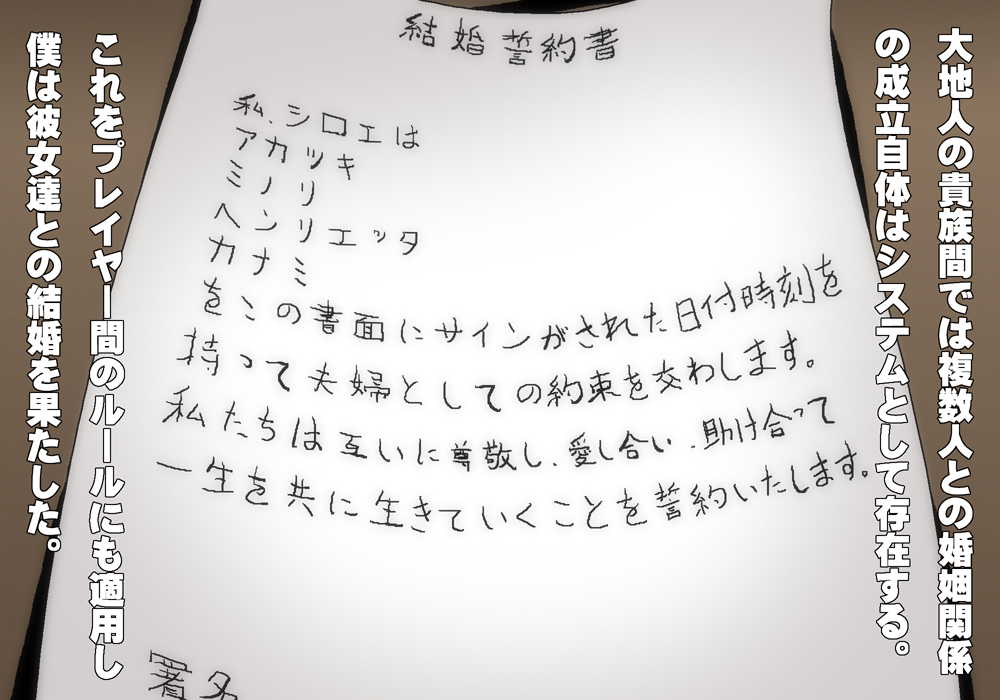 大地人の貴族間では複数人との婚姻関係
の成立自体はシステムとして存在する。
結婚誓約書
私、シロエは
アカツキ
ミノリ
ヘンリエッタ
カナミ
をこの書面にサインがされた日付時刻を
持って夫婦としての約束を交わします。
私たちは互いに尊敬し、愛し合い、助け合って
一生を共に生きていくことを誓約いたします。
署名
これをプレイヤー間のルールにも適用し
僕は彼女達との結婚を果たした。